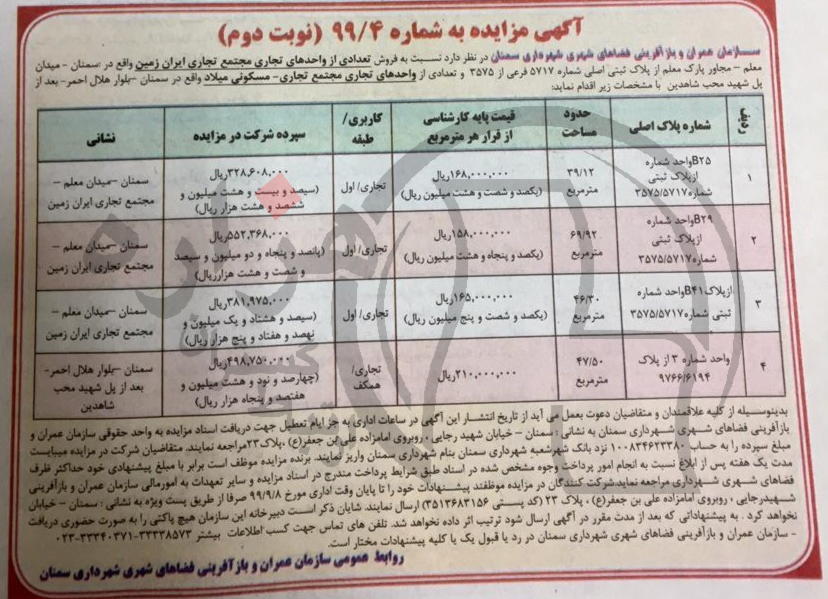 آگهی مزایده به شماره ۹۹/۴ (نوبت دوم)
سازمان عمران و بازآفرینی فضاهای شهری شهرداری سمنان در نظر دارد نسبت به فروش تعدادی از واحدهای تجاری مجتمع تجاری ایران زمین واقع در سمنان - میدان
معلم - مجاور پارک معلم از پلاک ثبتی اصلی شماره ۵۷۱۷ فرعی از ۳۵۷۵ و تعدادی از واحدهای تجاری مجتمع تجاری- مسکونی میلاد واقع در سمنان -بلوار هلال احمر- بعد از
پل شهید محب شاهدین با مشخصات زیر اقدام نماید:
ردیف | شماره پلاک اصلی | حدود مساحت | قیمت پایه کارشناسی از قرار هر مترمربع | کاربری/ طبقه | سپرده شرکت در مزایده | نشانی
۱ | B۲۵واحد شماره ازپلاک ثبتی شماره۳۵۷۵/۵۷۱۷ | ۳۹/۱۲ مترمربع | ۱۶۸,۰۰۰,۰۰۰ریال (یکصد و شصت و هشت میلیون ریال) | تجاری/ اول | ۳۲۸,۶۰۸,۰۰۰ریال (سیصد و بیست و هشت میلیون و ششصد و هشت هزار ریال) | سمنان -میدان معلم - مجتمع تجاری ایران زمین
۲ | B۲۹واحد شماره ازپلاک ثبتی شماره۳۵۷۵/۵۷۱۷ | ۶۹/۹۲ مترمربع | ۱۵۸,۰۰۰,۰۰۰ریال (یکصد و پنجاه و هشت میلیون ریال) | تجاری/ اول | ۵۵۲,۳۶۸,۰۰۰ریال (پانصد و پنجاه و دو میلیون و سیصد و شصت و هشت هزارریال) | سمنان -میدان معلم - مجتمع تجاری ایران زمین
۳ | ازپلاک B۴۱واحد شماره ثبتی شماره۳۵۷۵/۵۷۱۷ | ۴۶/۳۰ مترمربع | ۱۶۵,۰۰۰,۰۰۰ریال (یکصد و شصت و پنج میلیون ریال) | تجاری/ اول | ۳۸۱,۹۷۵,۰۰۰ریال (سیصد و هشتاد و یک میلیون و نهصد و هفتاد و پنج هزار ریال) | سمنان -میدان معلم - مجتمع تجاری ایران زمین
۴ | واحد شماره ۳ از پلاک ۹۷۶۶/۶۱۹۴ | ۴۷/۵۰ مترمربع | ۲۱۰,۰۰۰,۰۰۰ریال | تجاری/ همکف | ۴۹۸,۷۵۰,۰۰۰ریال (چهارصد و نود و هشت میلیون و هفتصد و پنجاه هزار ریال) | سمنان -بلوار هلال احمر- بعد از پل شهید محب شاهدین
بدینوسیله از کلیه علاقمندان و متقاضیان دعوت بعمل می آید از تاریخ انتشار این آگهی در ساعات اداری به جز ایام تعطیل جهت دریافت اسناد مزایده به واحد حقوقی سازمان عمران و
بازآفرینی فضاهای شهری شهرداری سمنان به نشانی : سمنان - خیابان شهید رجایی ، روبروی امامزاده علی بن جعفر(ع) ، پلاک۲۳مراجعه نمایند. متقاضیان شرکت در مزایده میبایست
مبلغ سپرده را به حساب ۱۰۰۸۳۴۶۲۳۳۸۰ نزد بانک شهرشعبه شهرداری سمنان بنام شهرداری سمنان واریز نمایند. برنده مزایده موظف است برابر با مبلغ پیشنهادی خود حداکثر ظرف
مدت یک هفته پس از ابلاغ نسبت به انجام امور پرداخت وجوه مشخص شده در اسناد طبق شرایط پرداخت مندرج در اسناد مزایده و سایر تعهدات به امورمالی سازمان عمران و بازآفرینی
فضاهای شهری شهرداری مراجعه نماید.شرکت کنندگان در مزایده موظفند پیشنهادات خود را تا پایان وقت اداری مورخ ۹۹/۹/۸ صرفا از طریق پست ویژه به نشانی : سمنان - خیابان
شهیدرجایی ، روبروی امامزاده علی بن جعفر(ع) ، پلاک ۲۳ (کد پستی ۳۵۱۳۶۸۳۱۵۶) ارسال نمایند. شایان ذکر است دبیرخانه این سازمان هیچ پاکتی را به صورت حضوری دریافت
نخواهد کرد . به پیشنهاداتی که بعد از مدت مقرر در آگهی ارسال شود ترتیب اثر داده نخواهد شد. تلفن های تماس جهت کسب اطلاعات بیشتر ۳۳۳۳۸۵۷۳-۳۳۳۴۰۳۷۱-۰۲۳
- سازمان عمران و بازآفرینی فضاهای شهری شهرداری سمنان در رد یا قبول یک یا کلیه پیشنهادات مختار است.
روابط عمومی سازمان عمران و بازآفرینی فضاهای شهری شهرداری سمنان